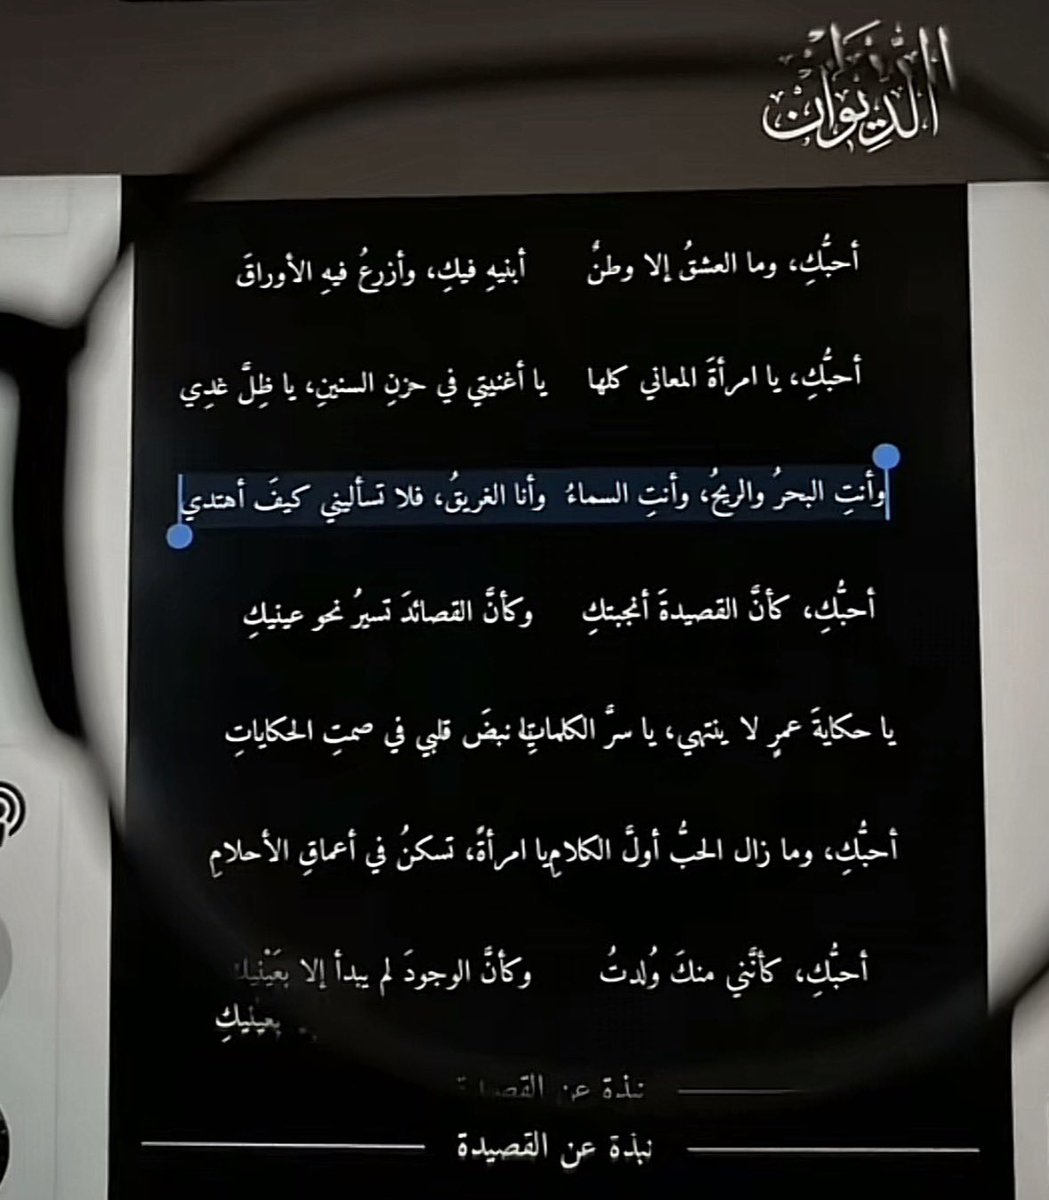 الدِّيوَان
أحبُّكِ، وما العشقُ إلا وطنٌ أبنيهِ فيكِ، وأزرعُ فيهِ الأوراقَ
أحبُّكِ، يا امرأةَ المعاني كلها يا أغنيتي في حزنِ السنينِ، يا ظِلَّ غدِي
وأنتِ البحرُ والريحُ، وأنتِ السماءُ وأنا الغريقُ، فلا تسأليني كيفَ أهتدي
أحبُّكِ، كأنَّ القصيدةَ أنجبتكِ وكأنَّ القصائدَ تسيرُ نحو عينيكِ
يا حكايةَ عمرٍ لا ينتهي، يا سرَّ الكلماتِ يا نبضَ قلبي في صمتِ الحكاياتِ
أحبُّكِ، وما زال الحبُّ أولَّ الكلامِ يا امرأةً، تسكنُ في أعماقِ الأحلامِ
أحبُّكِ، كأنَّني منكَ وُلدتُ وكأنَّ الوجودَ لم يبدأ إلا بعَيْنيكِ
بعينيكِ
نبذة عن القصيدة
نبذة عن القصيدة